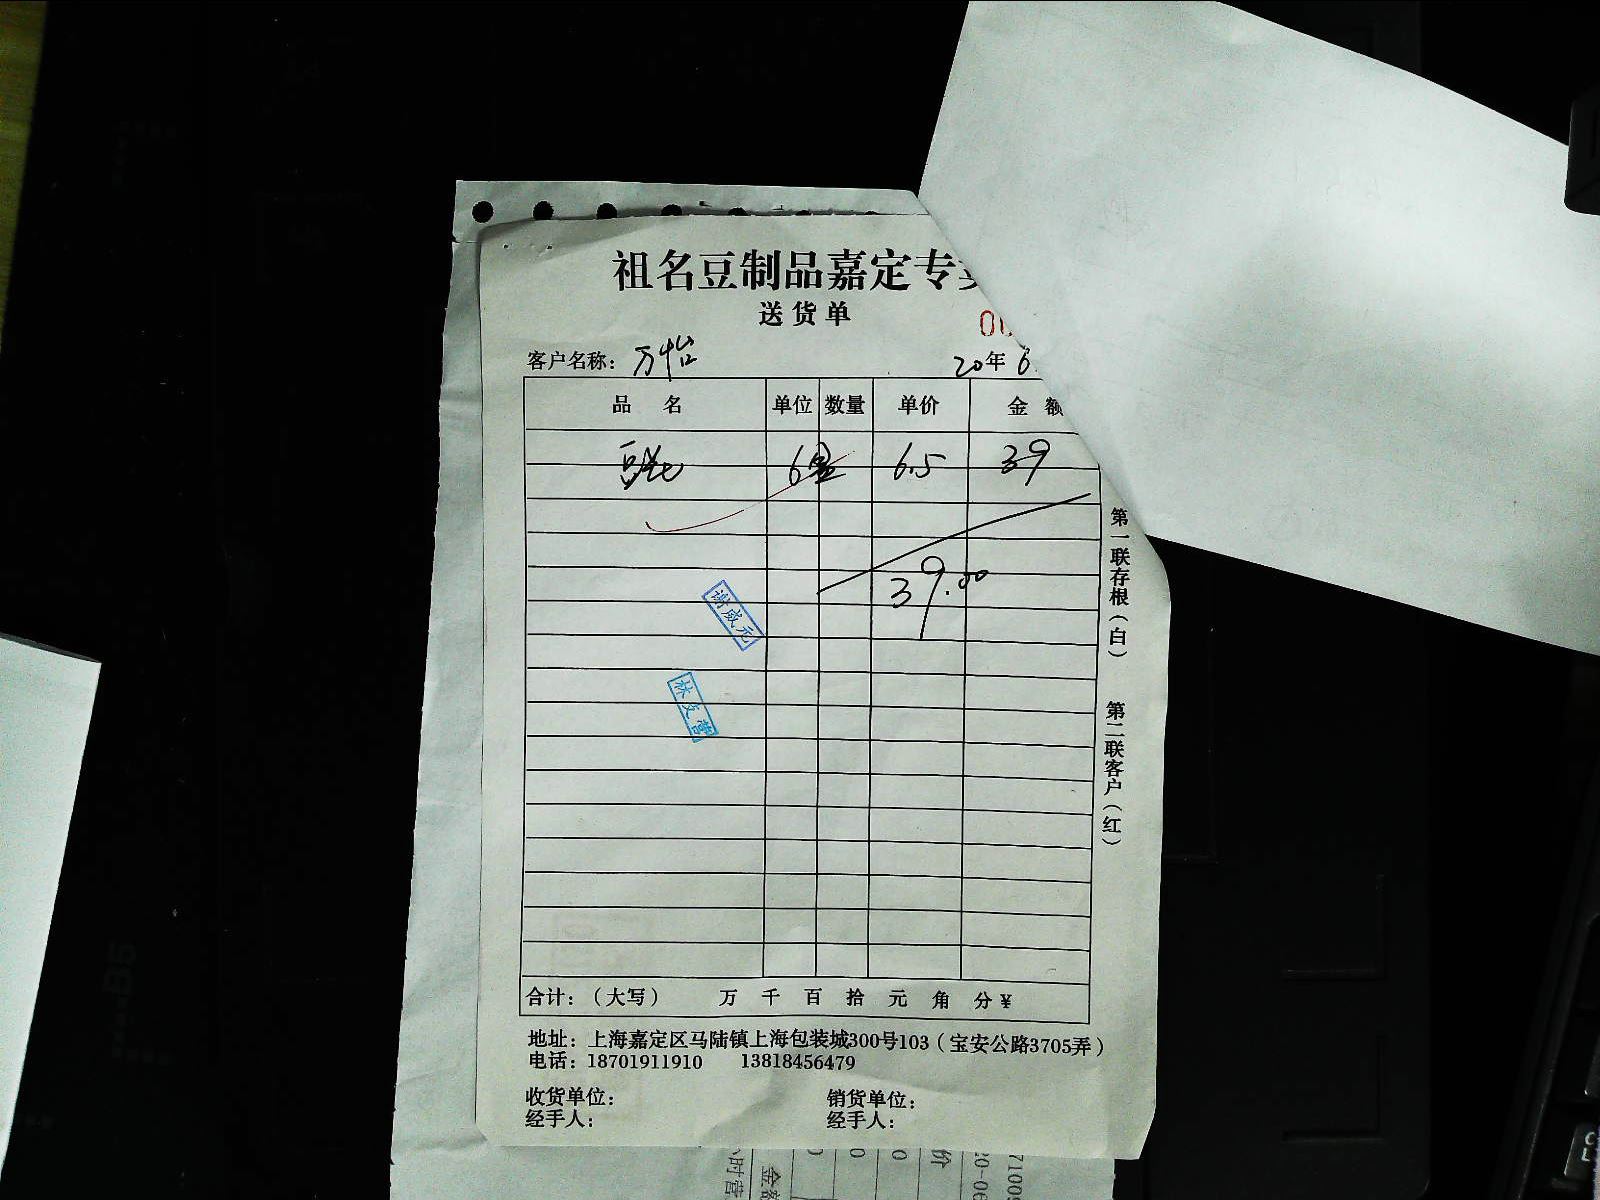 祖名豆制品嘉定专
送货单
00
客户名称：万怡
20年6
品 名 单位 数量 单价 金 额
6盒 6.5 39
39.00
谢威元
林 营
第一联存根（白） 第二联客户（红）
合计：（大写） 万 千 百 拾 元 角 分￥
地址：上海嘉定区马陆镇上海包装城300号103（宝安公路3705弄）
电话：18701911910 13818456479
收货单位： 销货单位：
经手人： 经手人：
小时营
金额
价
20-06
71009
B5